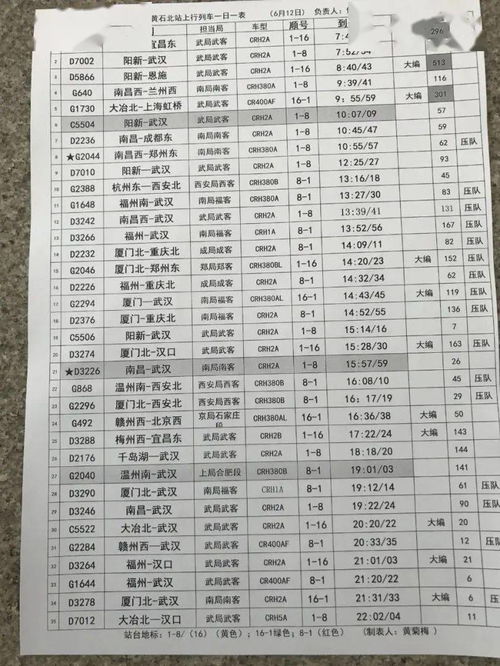 黄石北站上行列车一日一表 （6月12日） 负责人：
担当局 车型 顺号 到
宜昌东 武局武客 CRH2A 1-16 7:4 296
2 D7002 阳新-武汉 武局武客 CRH2A 1-8 7:52/54
3 D5866 阳新-恩施 武局武客 CRH2A 1-8 8:40/43 大编 513
4 G640 南昌西-兰州西 南局南客 CRH380A 1-8 9:39/41 116
5 G1730 大冶北-上海虹桥 武局武客 CR400AF 16-1 9：55/59 大编 301
6 C5504 阳新-武汉 武局武客 CRH2A 1-8 10:07/09 57
7 D2236 南昌-成都东 南局南客 CRH2A 1-8 10:45/47 59
8 ★G2044 南昌西-郑州东 南局南客 CRH380A 1-8 10:55/57 62 压队
9 D7010 阳新-武汉 武局武客 CRH2A 1-8 12:25/27 93
10 G2388 杭州东-西安北 西安局西客 CRH380B 8-1 13:16/18 45 压队
11 G1648 福州南-武汉 南局福客 CRH380A 8-1 13:27/30 83 压队
12 D3242 南昌西-武汉 南局南客 CRH2A 1-8 13:39/41 131 压队
13 D3266 福州-武汉 南局福客 CRH1A 8-1 13:52/56 167 压队
14 D2232 厦门北-重庆北 成局成客 CRH2A 8-1 14:09/11 82 压队
15 G2046 厦门北-郑州东 郑局郑客 CRH380BL 1-16 14:20/23 大编 152 压队
16 D2226 福州-重庆北 成局成客 CRH2A 8-1 14:32/34 62 压队
17 G2294 厦门—武汉 南局福客 CRH380AL 16-1 14:43/45 大编 119 压队
18 D2376 厦门-重庆北 南局福客 CRH2A 8-1 14:52/55 136 压队
19 C5506 阳新-武汉 武局武客 CRH2A 1-8 15:14/16 7
20 D3274 厦门北-汉口 武局武客 CRH2A 1-16 15:28/30 大编 163 压队
21 ★D3226 南昌-武汉 南局南客 CRH2A 1-8 15:57/59 26
22 G868 温州南-西安北 西安局西客 CRH380B 8-1 16:08/10 45 压队
23 G2296 厦门北-西安北 西安局西客 CRH380B 8-1 16：17/19 29 压队
24 G492 赣州西-北京西 京局石家庄印 CRH380AL 16-1 16:36/38 大编 50
25 D3288 梅州西-宜昌东 武局武客 CRH2B 16-1 17:22/24 大编 143
26 D2176 千岛湖—武汉 武局武客 CRH2A 8-1 18:18/20 144
27 G2040 温州南-武汉 上局合肥段 CRH380B 8-1 19:01/03 141
28 D3290 厦门北-武汉 南局福客 CRH1A 8-1 19:12/14 61 压队
29 D3246 南昌-武汉 南局南客 CRH2A 1-8 19:22/24 90 压队
30 C5522 大冶北-武汉 武局武客 CRH2A 1-16 20:20/22 大编 27
31 G2284 赣州西—武汉 武局武客 CR400AF 8-1 20:33/35 12 压队
32 D3264 福州-汉口 武局武客 CRH2A 16-1 21:01/03 大编 21
33 G1644 福州-武汉 武局武客 CR400AF 8-1 21:20/22 6
34 D3278 厦门北-武汉 南局南客 CRH2A 1-16 21:31/33 大编 6 压队
35 D7012 大冶北—汉口 武局武客 CRH5A 1-8 22:02/04 11
站台地标：1-8/（16）（黄色）；16-1绿色；8-1（红色） （制表人：黄菊梅）